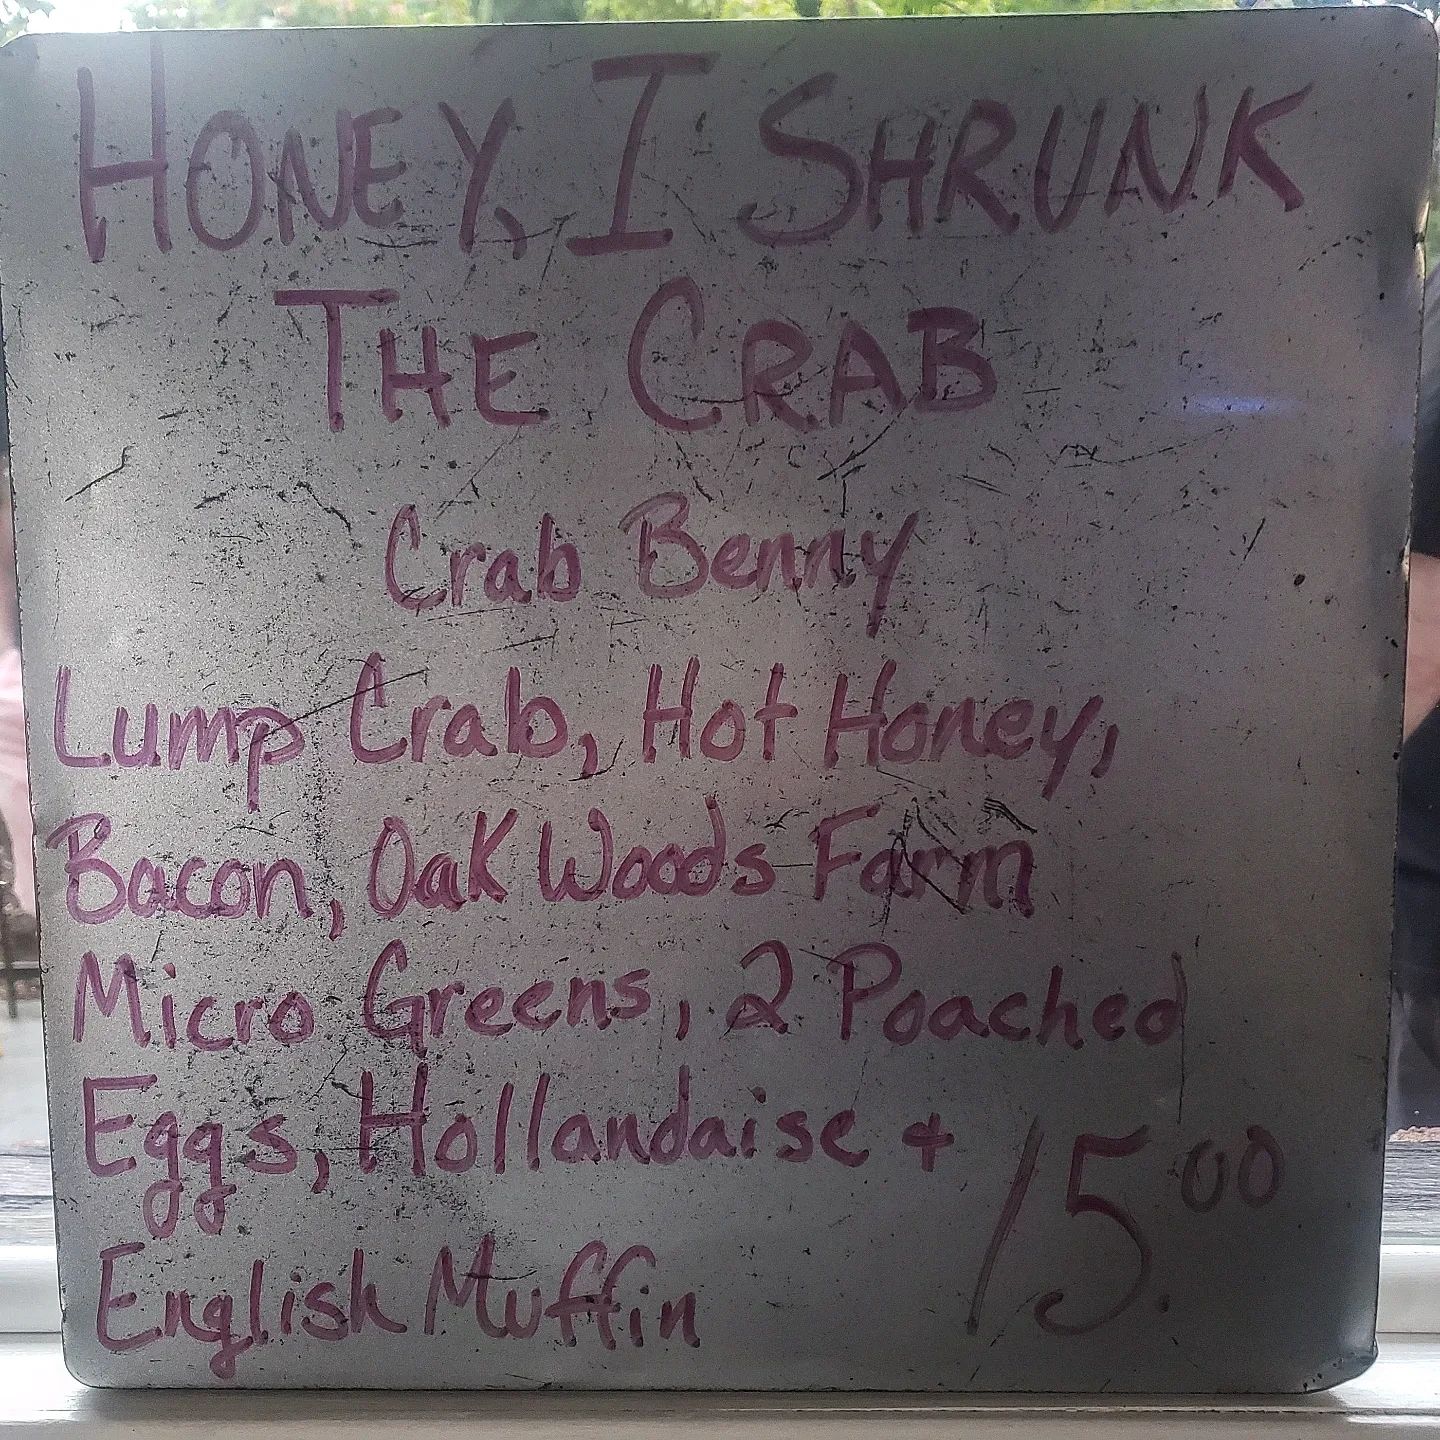 HONEY, I SHRUNK
THE CRAB
Crab Benny
Lump Crab, Hot Honey,
Bacon, Oak Woods Farm
Micro Greens, 2 Poached
Eggs, Hollandaise +
English Muffin
15.00